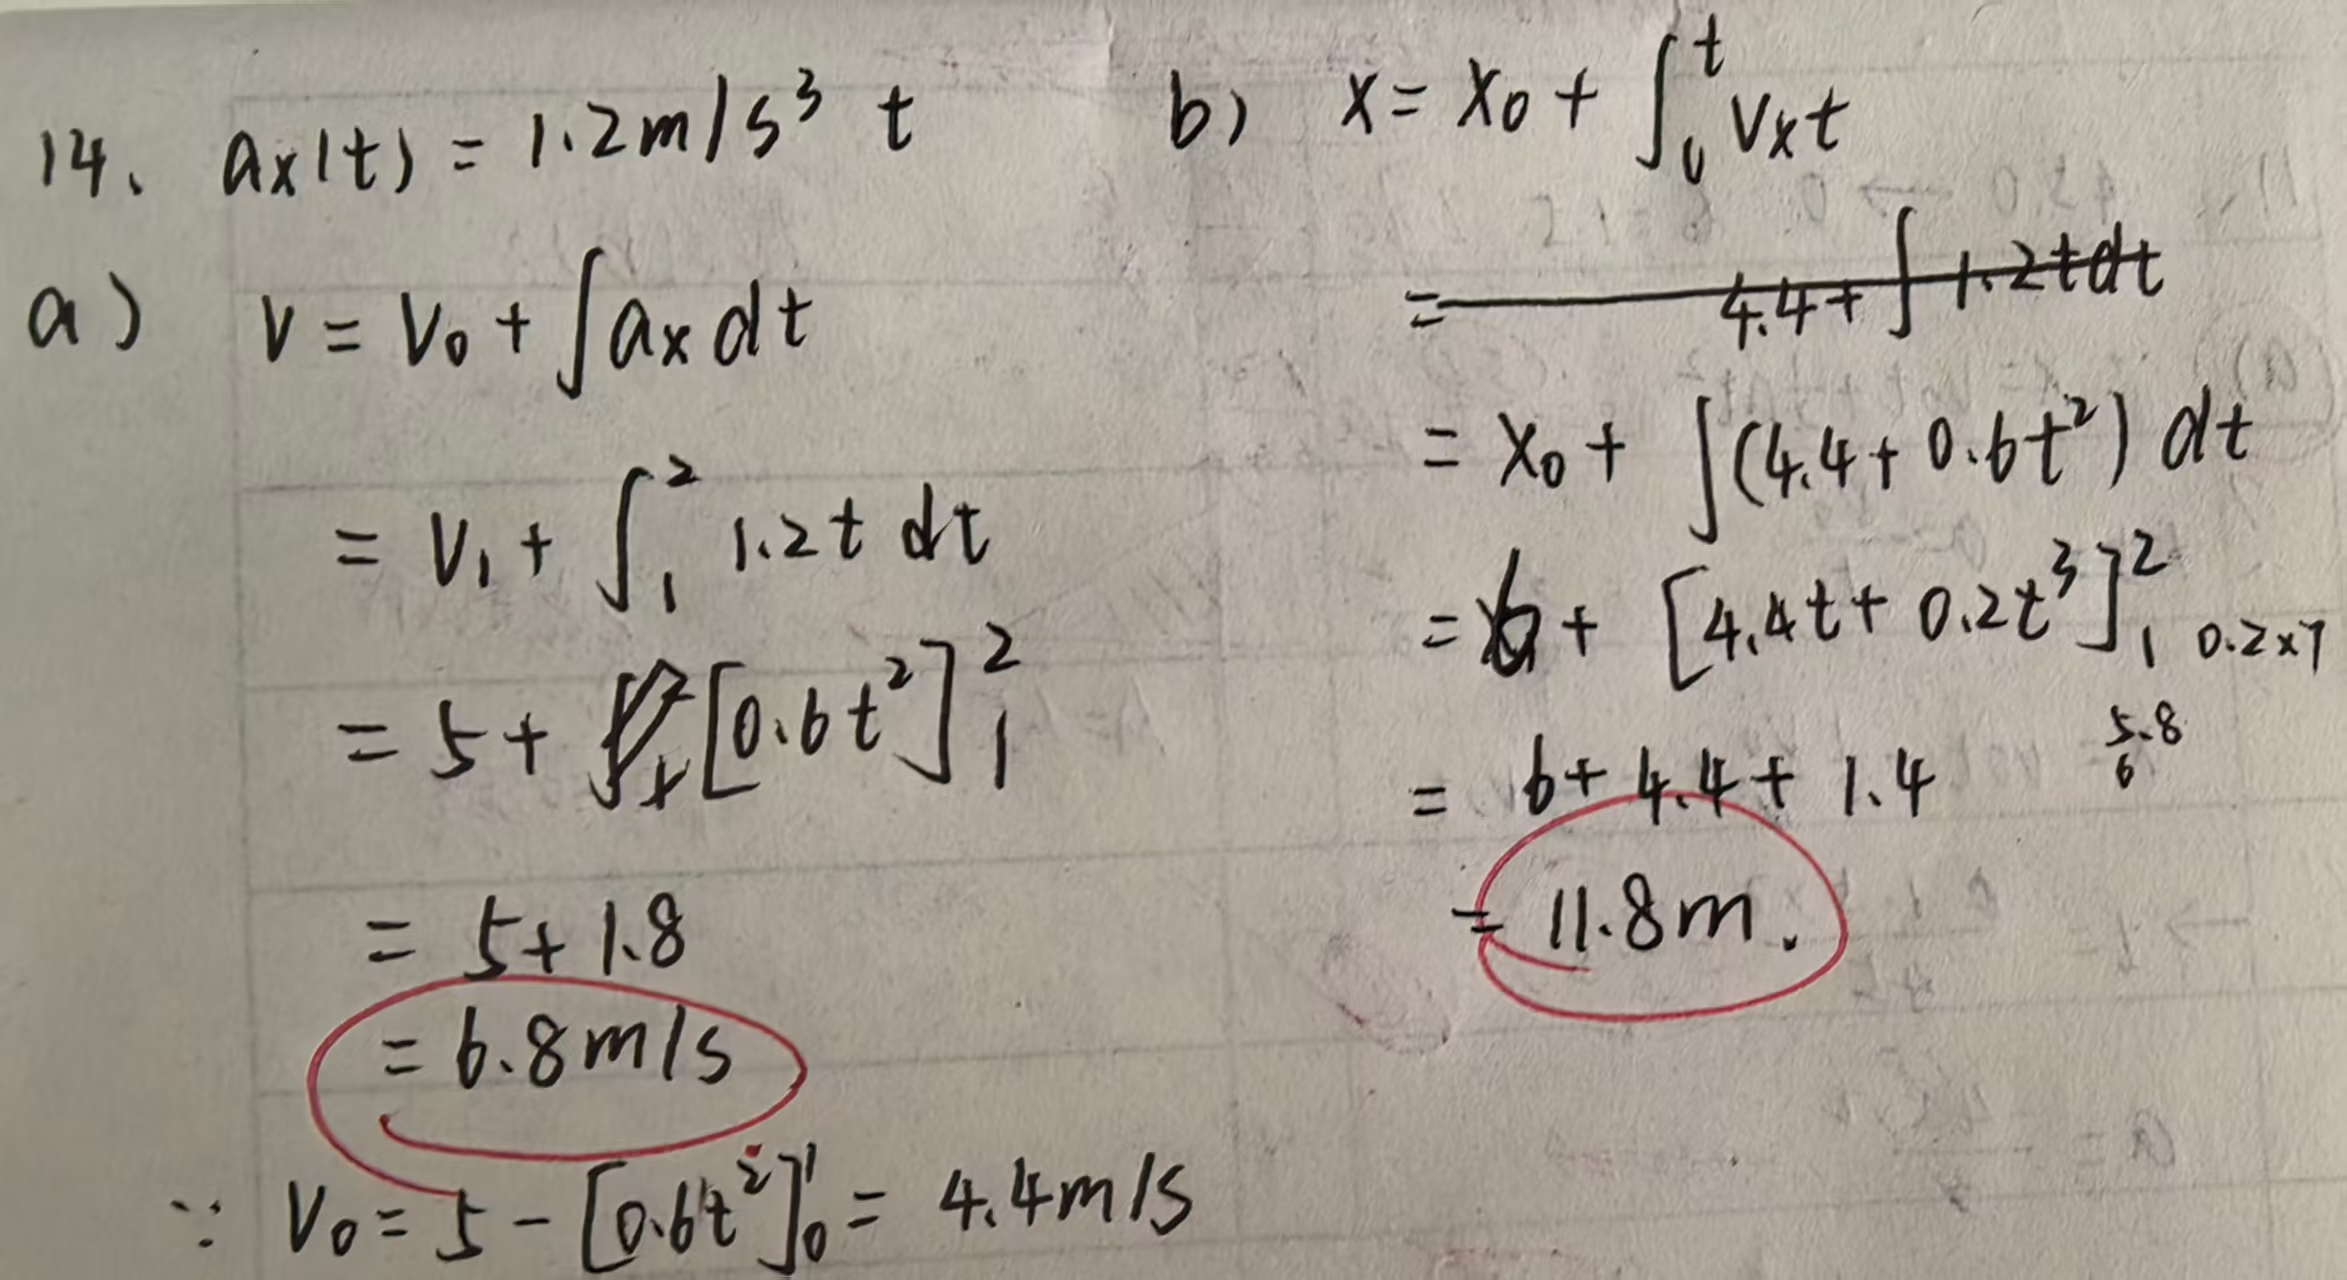 14. ax(t) = 1.2m/s³ t
a) v = v₀ + ∫ax dt
= v₁ + ∫₁² 1.2t dt
= 5 + [0.6t²]₁²
= 5 + 1.8
= 6.8m/s
∵ v₀ = 5 - [0.6t²]₀¹ = 4.4m/s
b) x = x₀ + ∫₀ᵗ vxt
= 4.4 + ∫ 1.2tdt
= x₀ + ∫(4.4 + 0.6t²) dt
= 6 + [4.4t + 0.2t³]₁² 0.2×7
5.8
6
= 6 + 4.4 + 1.4
= 11.8m.